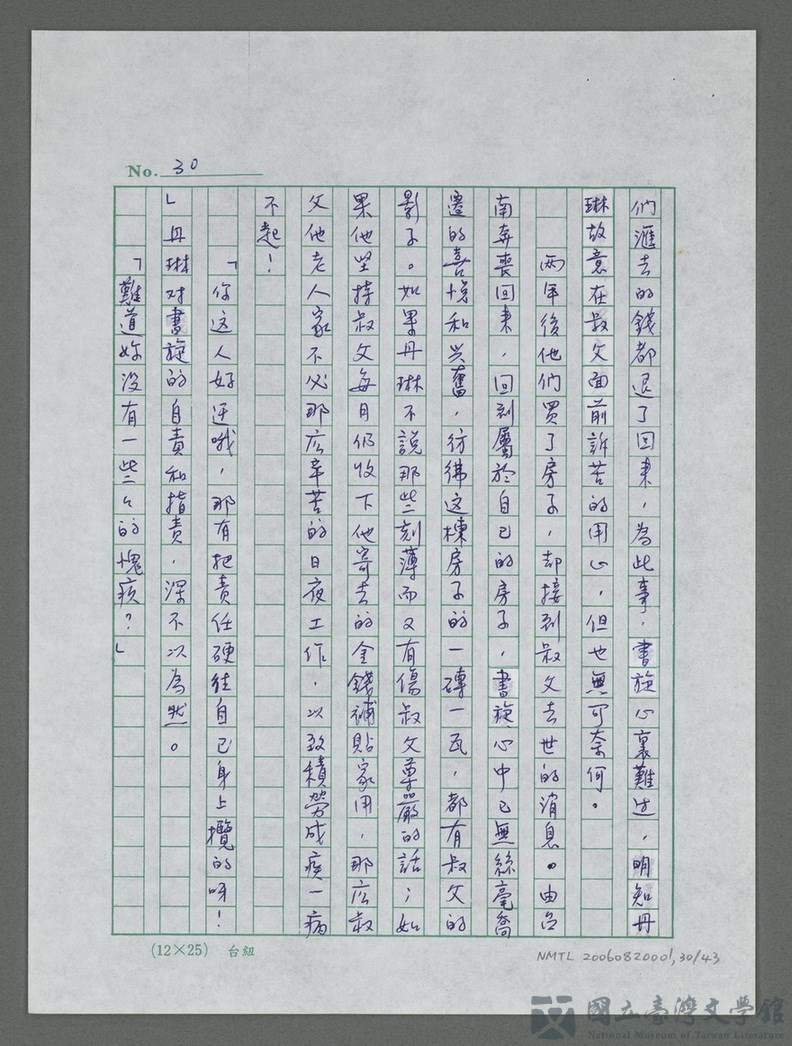 No. 30
們滙去的錢都退了回來，為此事，書旋心裏難过，明知丹
琳故意在叔父面前訴苦的用心，但也無可奈何。
兩年後他們買了房子，却接到叔父去世的消息。由台
南奔喪回來，回到屬於自己的房子，書旋心中已無絲毫喬
遷的喜悅和兴奮，彷彿这棟房子的一磚一瓦，都有叔父的
影子。如果丹琳不說那些刻薄而又有傷叔父尊嚴的話；如
果他坚持叔父每月仍收下他寄去的金錢補貼家用，那広叔
父他老人家不必那広辛苦的日夜工作，以致積勞成疾一病
不起！
「你这人好迂哦，那有把責任硬往自己身上攬的呀！
」丹琳对書旋的自責和指責，深不以為然。
「難道妳沒有一些々的愧疚？」
(12×25) 台紐
NMTL 20060820001,30/43
國立臺灣文學館
National Museum of Taiwan Literature